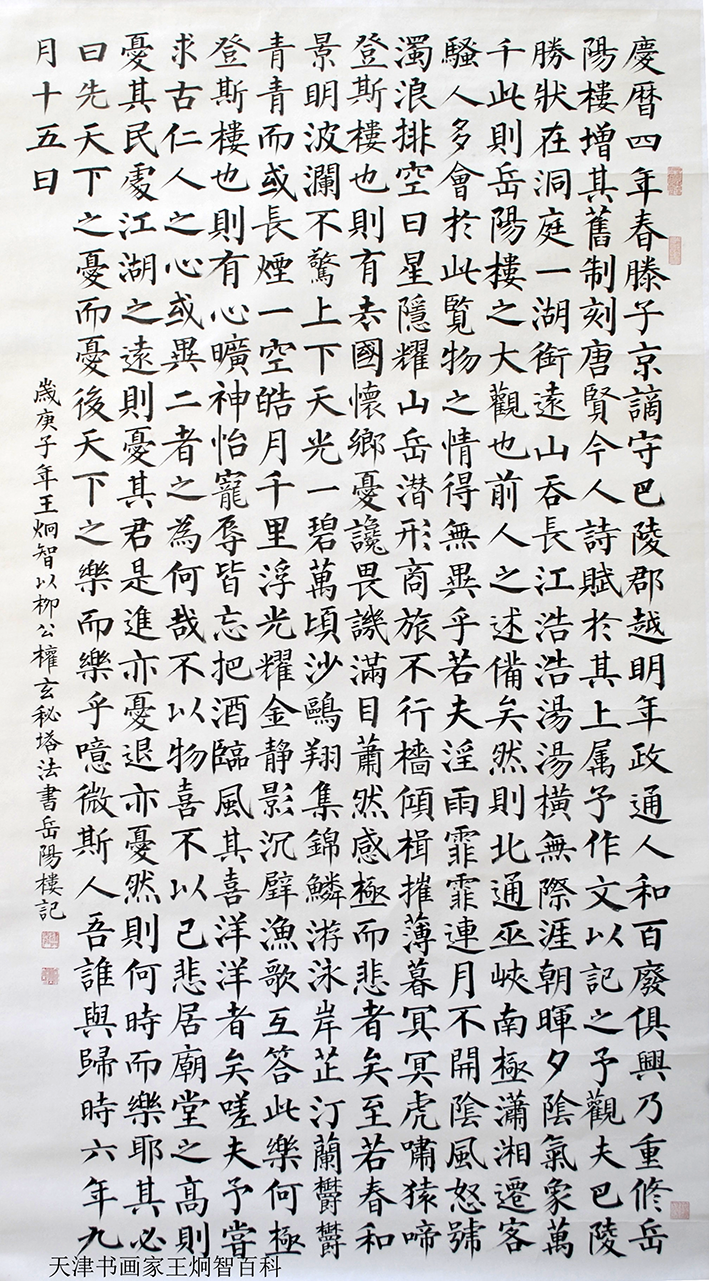 慶曆四年春滕子京謫守巴陵郡越明年政通人和百廢俱興乃重修岳
陽樓增其舊制刻唐賢今人詩賦於其上属予作文以記之予觀夫巴陵
勝狀在洞庭一湖銜遠山吞長江浩浩湯湯橫無際涯朝暉夕陰氣象萬
千此則岳陽樓之大觀也前人之述備矣然則北通巫峽南極瀟湘遷客
騷人多會於此覽物之情得無異乎若夫淫雨霏霏連月不開陰風怒號
濁浪排空日星隱耀山岳潛形商旅不行檣傾楫摧薄暮冥冥虎嘯猿啼
登斯樓也則有去國懷鄉憂讒畏譏滿目蕭然感極而悲者矣至若春和
景明波瀾不驚上下天光一碧萬頃沙鷗翔集錦鱗游泳岸芷汀蘭鬱鬱
青青而或長煙一空皓月千里浮光耀金静影沉璧漁歌互答此樂何極
登斯樓也則有心曠神怡寵辱皆忘把酒臨風其喜洋洋者矣嗟夫予嘗
求古仁人之心或異二者之為何哉不以物喜不以己悲居廟堂之高則
憂其民處江湖之遠則憂其君是進亦憂退亦憂然則何時而樂耶其必
曰先天下之憂而憂後天下之樂而樂乎噫微斯人吾誰與歸時六年九
月十五日
歲庚子年王炯智以柳公權玄秘塔法書岳陽樓記
天津书画家王炯智百科